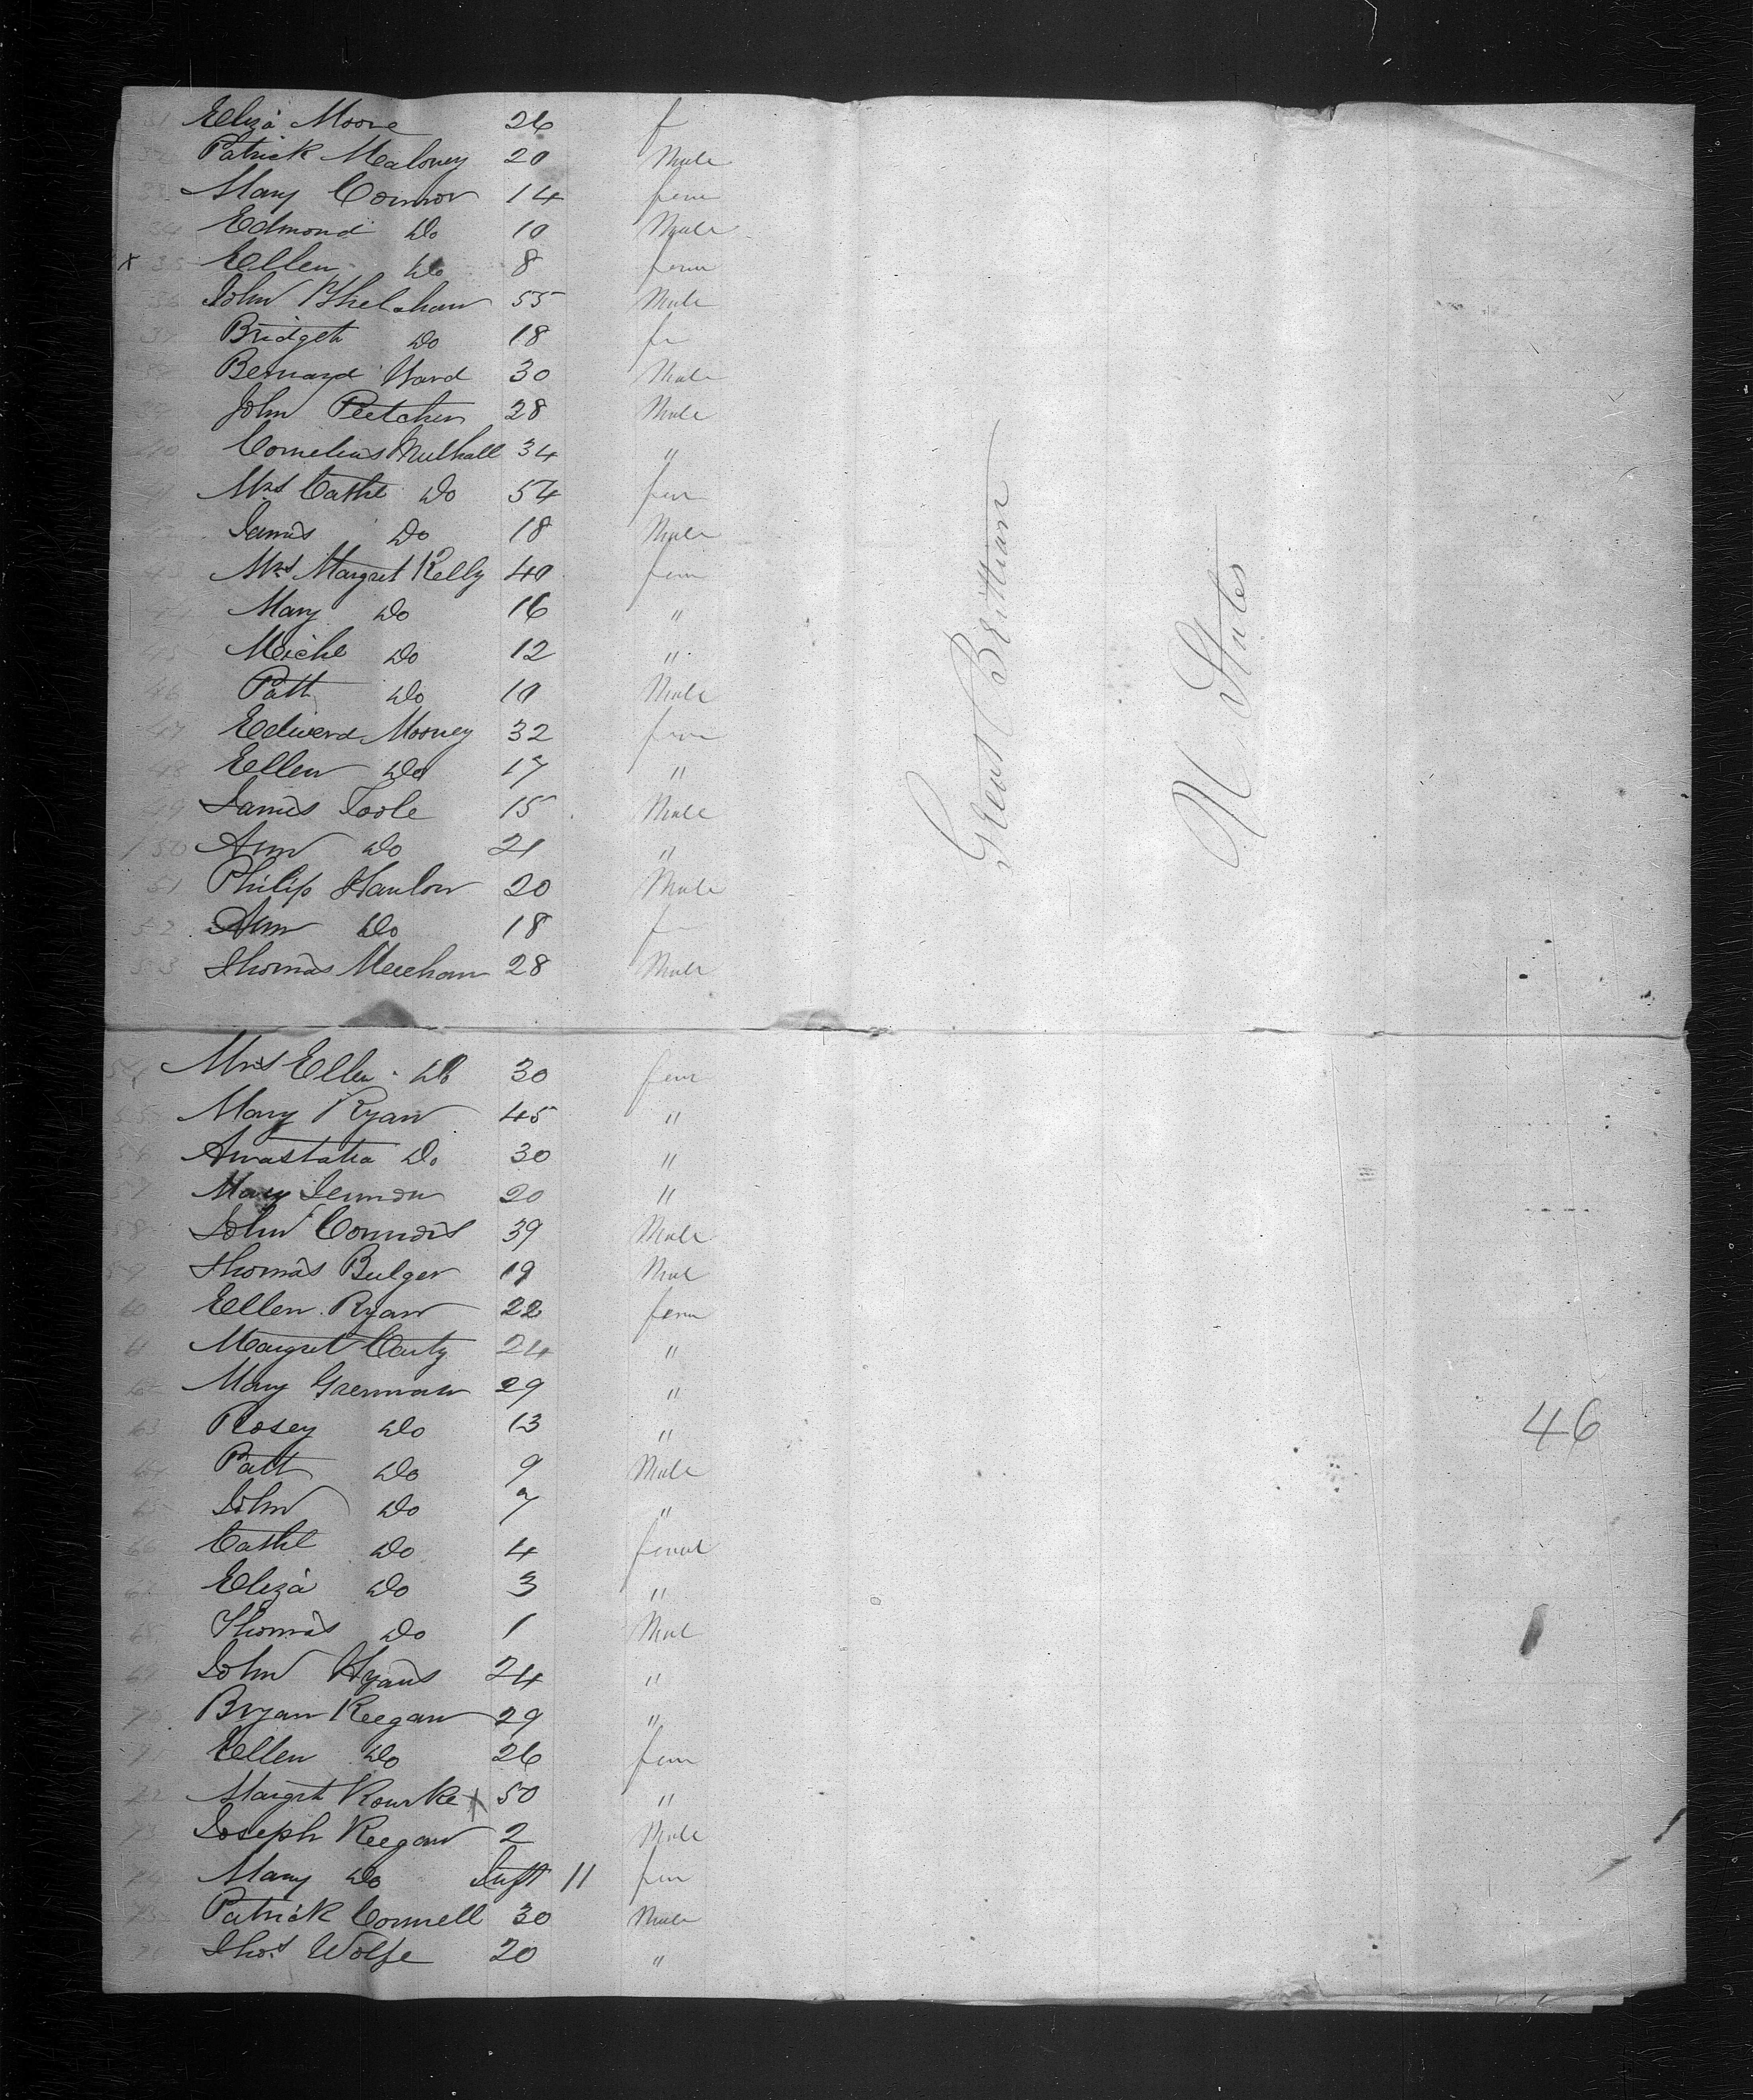 31 Eliza Moore 26 f
32 Patrick Maloney 20 Male
33 Mary Connor 14 fem
34 Edmond Do 10 Male
x 35 Ellen Do 8 fem
36 John Whelahan 55 Male
37 Bridget Do 18 fe
38 Bernard Ward 30 Male
39 John Pletcher 28 Male
40 Cornelius Mulhall 34 "
41 Mrs Cathe Do 54 fem
42 James Do 18 Male
43 Mrs Margret Kelly 40 fem
44 Mary Do 16 "
45 Michl Do 12 "
46 Patt Do 10 Male
47 Edward Mooney 32 fem
48 Ellen Do 17 "
49 James Toole 15 Male
150 Ann Do 21 "
51 Philip Hanlon 20 Male
52 Ann Do 18 f
53 Thomas Meehan 28 Male
54 Mrs Ellen Do 30 fem
55 Mary Ryan 45 "
56 Anastatia Do 30 "
57 Mary Lennon 20 "
58 John Connors 39 Male
59 Thomas Bulger 19 Mal
60 Ellen Ryan 22 fem
61 Margret Carty 24 "
62 Mary Grennan 29 "
63 Rosey Do 13 "
64 Patt Do 9 Male
65 John Do 7 "
66 Cathe Do 4 femal
67 Eliza Do 3 "
68 Thomas Do 1 Mal
69 John Hyans 24 "
70 Bryan Keegan 29 "
71 Ellen Do 26 fem
72 Margrt Rourke x 50 "
73 Joseph Keegan 2 Male
74 Mary Do Inft 11 fem
75 Patrick Connell 30 Male
76 Thos Wolfe 20 "
Great Brittian
U States
46